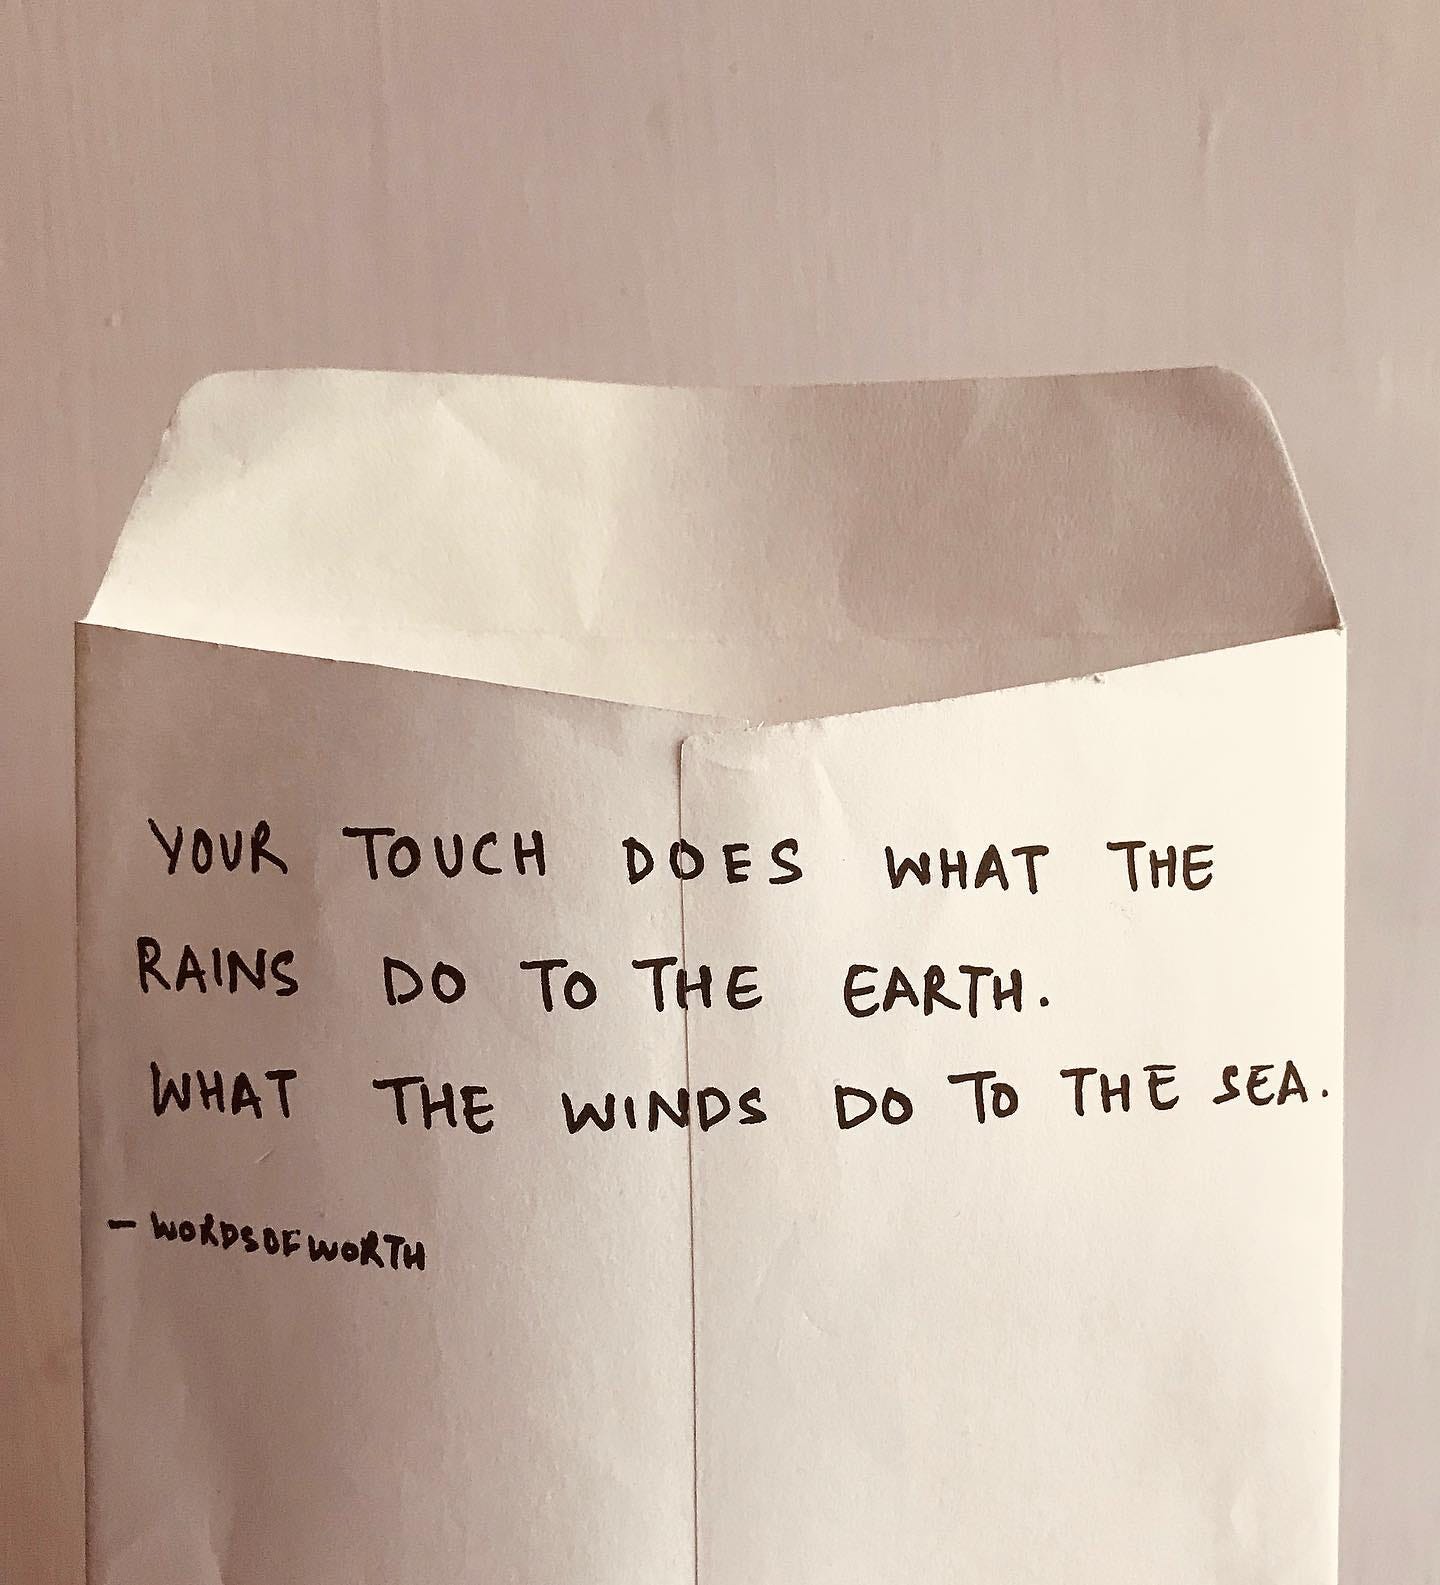 YOUR TOUCH DOES WHAT THE
RAINS DO TO THE EARTH.
WHAT THE WINDS DO TO THE SEA.
- WORDSOFWORTH